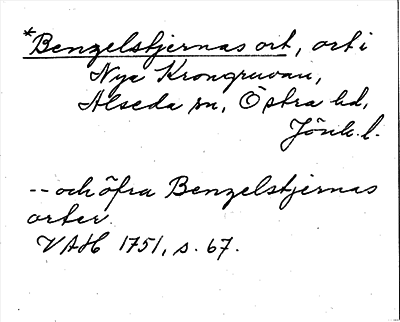 *Benzelstjernas ort, ort i
Nya Krongruvan,
Alseda sn, Östra hd,
Jönk. l.
-- och öfra Benzelstjernas
orter.
VAH 1751, s. 67.